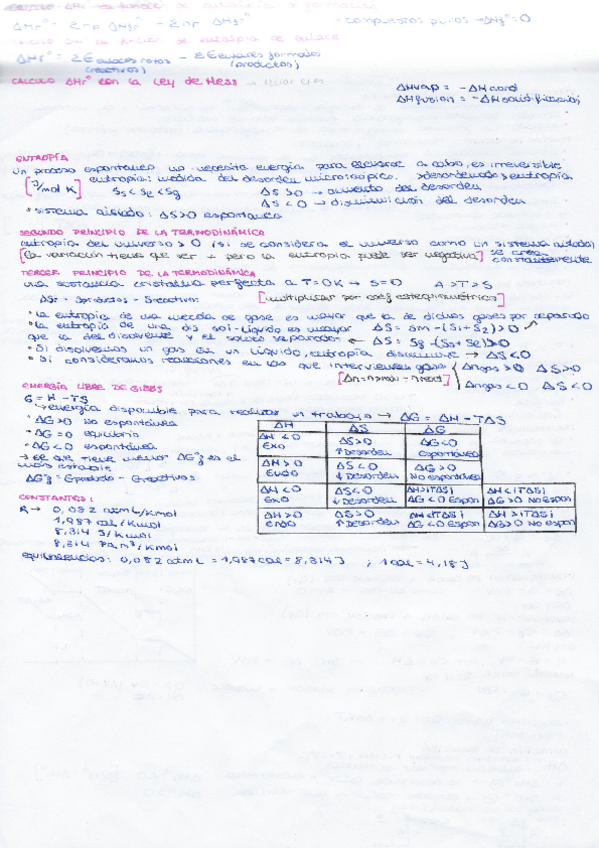 CALCULO ΔHrº en función de entalpía de formación
ΔHrº = Σnp ΔHfº - Σnr ΔHfº · compuestos puros → ΔHfº = 0
en función de entalpía de enlace
ΔHrº = ΣE enlaces rotos - ΣE enlaces formados
(reactivos) (productos)
CALCULO ΔHrº con la LEY DE HESS →
ΔHvap = -ΔHcond
ΔHfusion = -ΔHsolidificación
ENTROPÍA
Un proceso espontáneo no necesita energía para llevarse a cabo, es irreversible
[J/mol K] entropia: medida del desorden microscópico. >desorden >entropia
Ss < Sl < Sg ΔS > 0 → aumento del desorden
ΔS < 0 → disminución del desorden
* sistema aislado: ΔS>0 espontánea
SEGUNDO PRINCIPIO DE LA TERMODINÁMICA
entropía del universo > 0 (si se considera el universo como un sistema aislado)
[la variación tiene que ser + pero la entropía puede ser negativa] se crea constantemente
TERCER PRINCIPIO DE LA TERMODINÁMICA
una sustancia cristalina perfecta a T=0K → S=0 A >T >S
ΔS = Sproductos - Sreactivos [multiplicar por coef estequiométrico]
* la entropía de una mezcla de gase es mayor que la de dichos gases por separado
* la entropía de una dis sol-líquido es mayor ΔS = Sm - (S1 + S2) > 0
que la del disolvente y el soluto separados ← ΔS = Sg - (Ss + Se) > 0
* Si disolvemos un gas en un líquido, entropía disminuye → ΔS<0
* Si consideramos reacciones en las que intervienen gases { Δngas > 0 ΔS > 0
[Δn = nprod - nreac] Δngas < 0 ΔS < 0
ENERGÍA LIBRE DE GIBBS
G = H - TS
↳ energía disponible para realizar un trabajo → ΔG = ΔH - TΔS
* ΔG > 0 no espontánea
* ΔG = 0 equilibrio
* ΔG < 0 espontánea
→ el que tiene menor ΔGºf es el
más estable
ΔGºf = Gproducto - Greactivos
ΔH ΔS ΔG
ΔH < 0 Exo ΔS > 0 ↑ Desorden ΔG < 0 espontánea
ΔH > 0 Endo ΔS < 0 ↓ Desorden ΔG > 0 No espontánea
ΔH < 0 Exo ΔS < 0 ↓ Desorden ΔH > |TΔS| ΔG < 0 Espon ΔH < |TΔS| ΔG > 0 No espon
ΔH > 0 endo ΔS > 0 ↑ Desorden ΔH < |TΔS| ΔG < 0 espon ΔH > |TΔS| ΔG > 0 No espon
CONSTANTES:
R → 0,082 atmL/Kmol
1,987 cal/Kmol
8,314 J/Kmol
8,314 Pa m³/Kmol
equivalencias: 0,082 atmL = 1,987 cal = 8,314 J ; 1 cal = 4,18 J